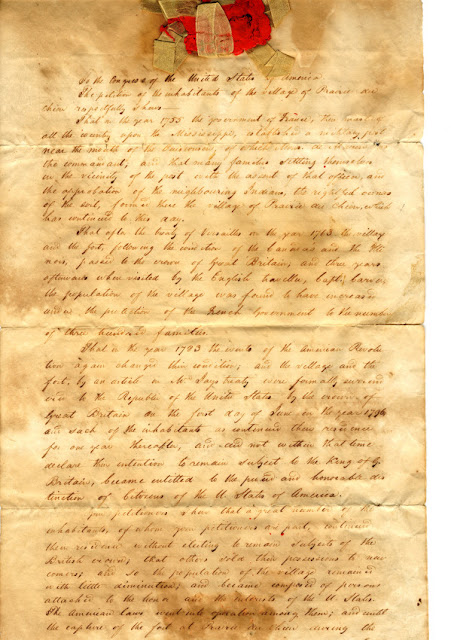 To the Congress of the United States of America
The petition of the inhabitants of the village of Prairie du
chien respectfully shows —
That in the year 1755 the government of France, then
all the country upon the Mississippi, established a military post
near the mouth of the Ouisconsin, of which
the commandant, and that many families settling themselves
in the vicinity of the post with the assent of that officer, and
the approbation of the neighbouring Indians, the rightful owners
of the soil, formed there the village of Prairie du Chien, which
has continued to this day.
That after the treaty of Versailles in the year 1763 the village
and the fort, following the condition of the Canadas and the Illi
nois, passed to the crown of Great Britain, and three years
afterwards when visited by the English traveller, Captn Carver,
the population of the village was found to have increased
under the protection of the French Government to the number
of three hundred families
That in the year 1783 the events of the American Revolu
tion again changed their condition; and the village and the
fort, by an article in Mr Jays treaty were formally surrend
ered to the Republic of the United States by the crown of
Great Britain on the first day of June in the year 1796
and such of the inhabitants as continued their residence
for one year thereafter, and did not within that time
declare their intention to remain subject to the King of G
Britain, became entitled to the proud and honorable dis
tinction of citizens of the U States of America.
Your petitioners show that a great number of the
inhabitants, of whom your petitioners are part, continued
their residence without electing to remain subjects of the
British crown; that others sold their possessions to new
comers; and so the population of the village remained
with little diminution; and became composed of persons
attached to the honor and the interests of the U States.
The American laws went into operation among them; and until
the capture of the fort at Prairie du Chien during the